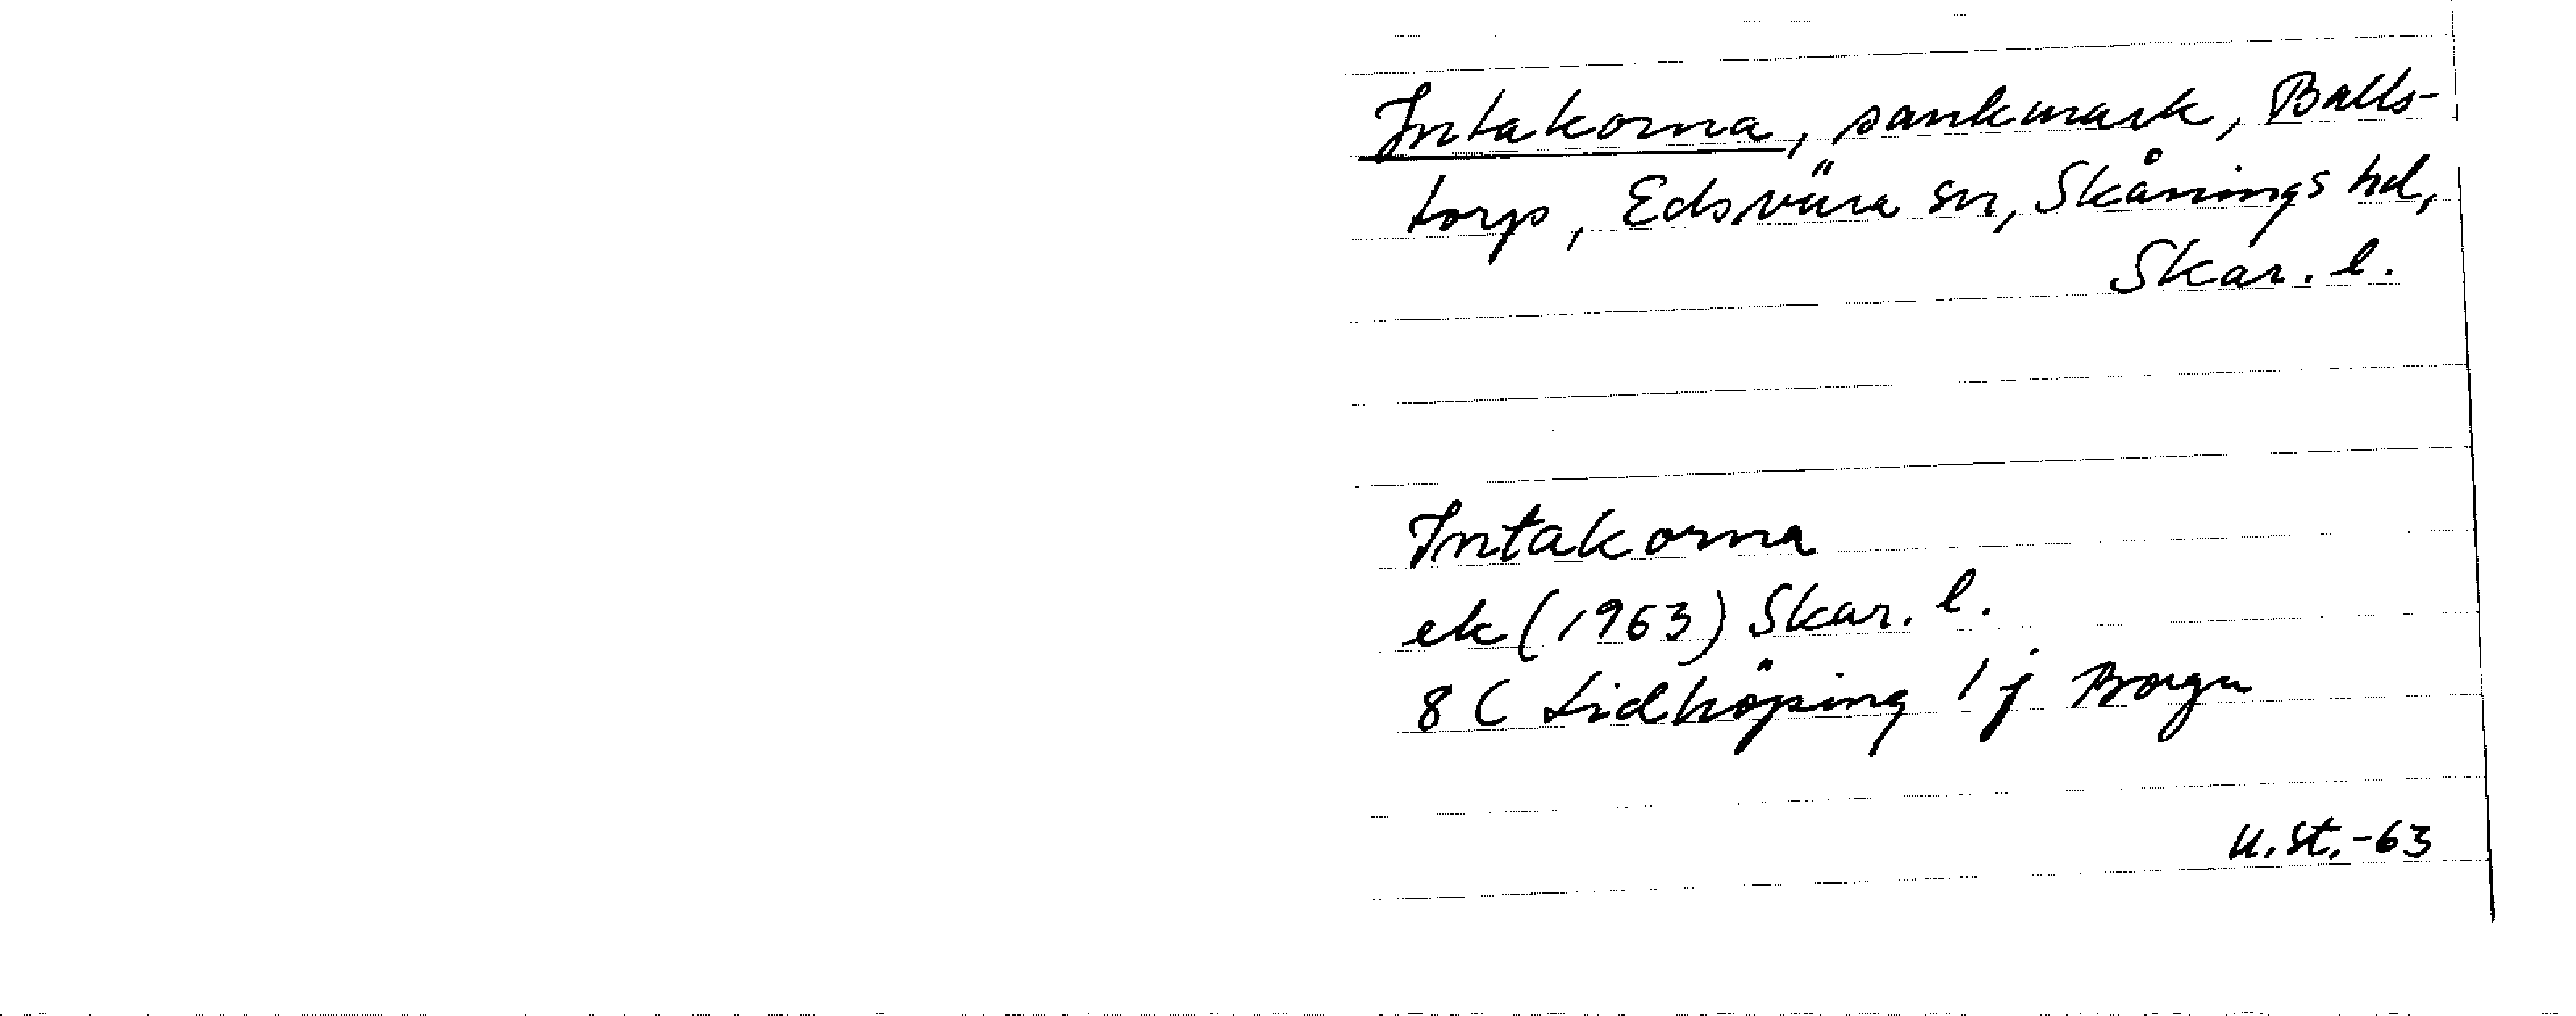 Intakorna, sankmark, Balls-
torp, Edsvära sn, Skånings hd,
Skar. l.
Intakorna
ek (1963) Skar. l.
8 C Lidköping 1 j
U.St.-63